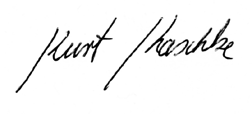 Kurt Kaschke